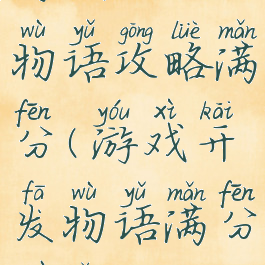 wù yǔ gōng lüè mǎn
物语攻略满
fēn yóu xì kāi
分(游戏开
fā wù yǔ mǎn fēn
发物语满分